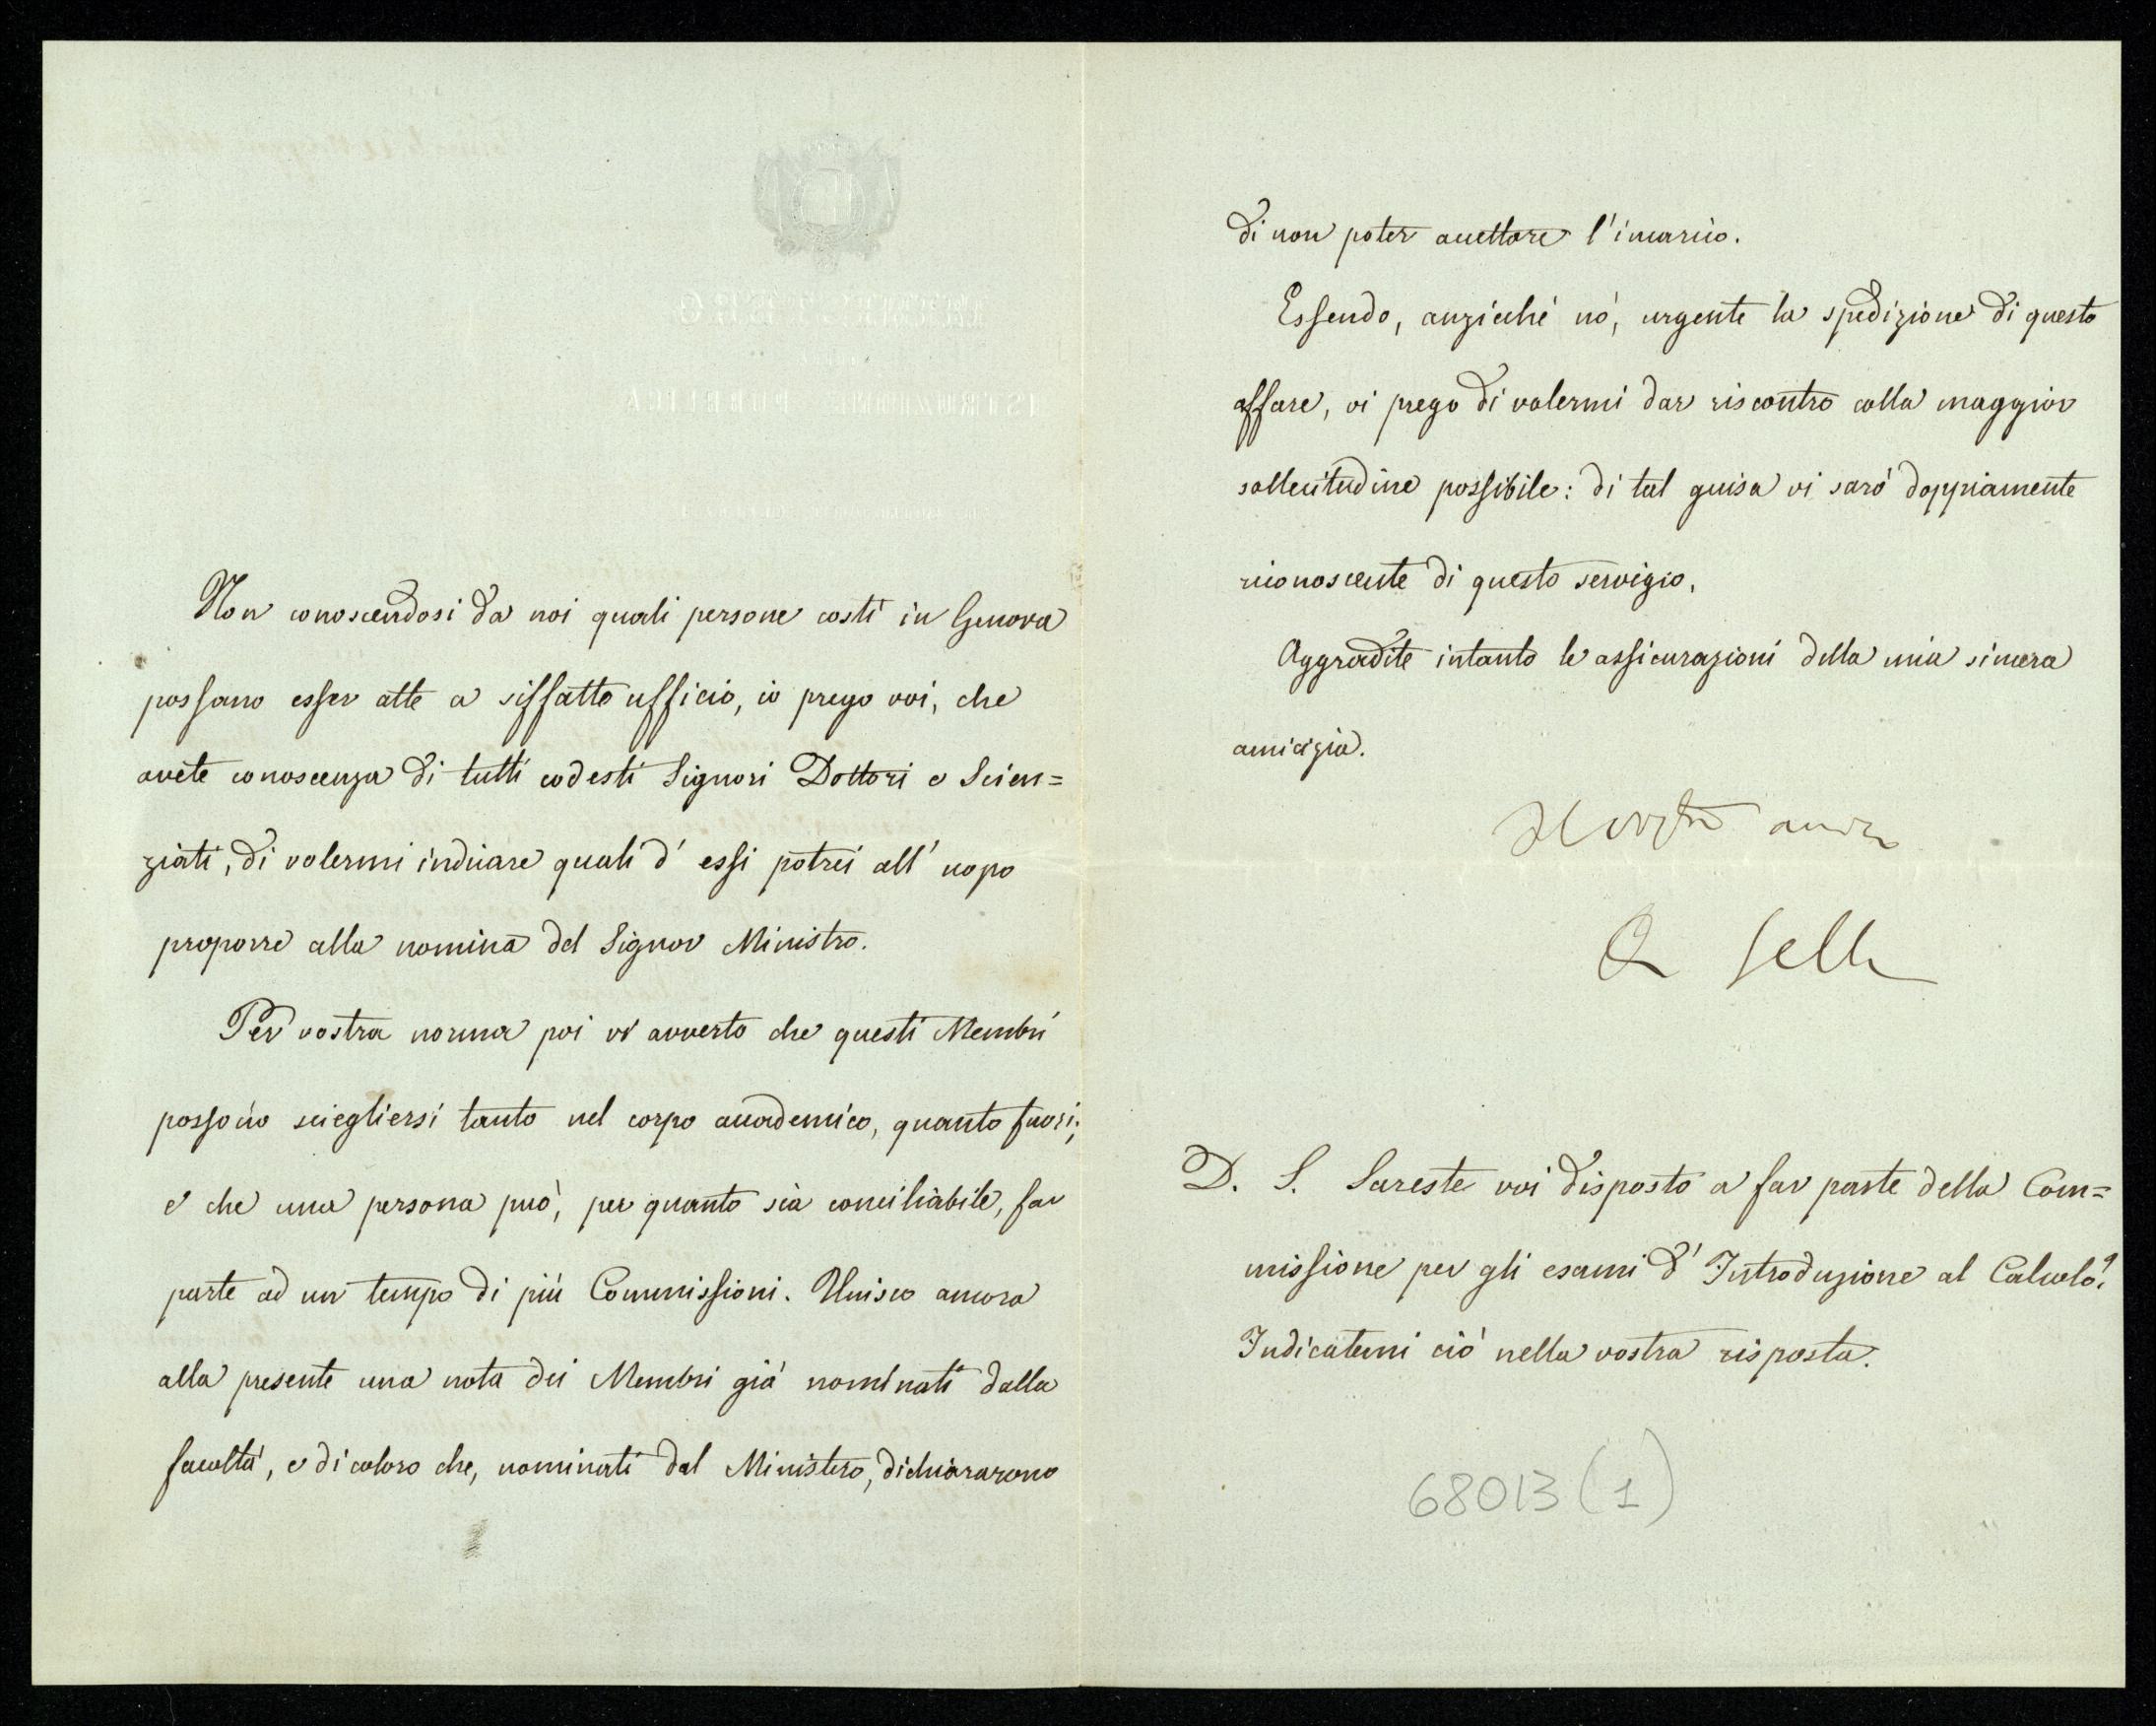 Non conoscendosi da noi quali persone costì in Genova
possano esser atte a siffatto ufficio, io prego voi, che
avete conoscenza di tutti codesti Signori Dottori e Scien=
ziati, di volermi indicare quali d' essi potrei all' uopo
proporre alla nomina del Signor Ministro.
Per vostra norma poi vi avverto che questi Membri
possono sciegliersi tanto nel corpo accademico, quanto fuori;
e che una persona può, per quanto sia conciliabile, far
parte ad un tempo di più Commissioni. Unisco ancora
alla presente una nota dei Membri già nominati dalla
facoltà, e di coloro che, nominati dal Ministero, dichiararono
di non poter accettare l'incarico.
Essendo, anzicchè nò, urgente la spedizione di questo
affare, vi prego di volermi dar riscontro colla maggior
sollecitudine possibile: di tal guisa vi sarò doppiamente
riconoscente di questo servigio.
Aggradite intanto le assicurazioni della mia sincera
amicizia.
Il vostro amico
Q Sella
D. S. Sareste voi disposto a far parte della Com=
missione per gli esami d' Introduzione al Calcolo?
Indicatemi ciò nella vostra risposta.
68013 (1)